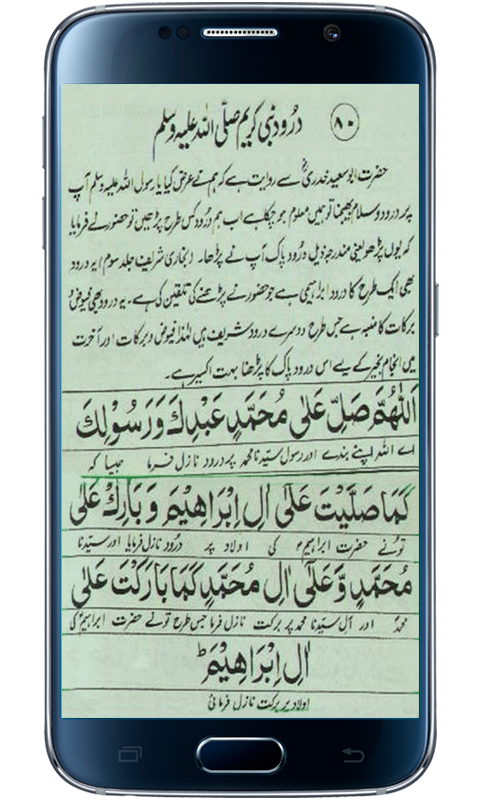 ۸۰ درُود نبی کریم صلّی اللہ علیہ وسلم
حضرت ابو سعید خدریؓ سے روایت ہے کہ ہم نے عرض کیا یا رسول اللہ علیہ وسلم آپ
پر درود و سلام بھیجنا تو ہمیں معلوم ہو چکا ہے اب ہم درُود کس طرح پڑھیں تو حضورؐ نے فرمایا
کہ یوں پڑھو یعنی مندرجہ ذیل درُود پاک آپ نے پڑھا۔ (بخاری شریف جلد سوم) یہ درود
بھی ایک طرح کا درود ابراہیمی ہے جو حضور نے پڑھنے کی تلقین کی ہے۔ یہ درود بھی فیوض و
برکات کا منبع ہے جس طرح دوسرے درود شریف ہیں لہٰذا فیوض و برکات اور آخرت
میں انجام بخیر کے لیے اس درود پاک کا پڑھنا بہت اکسیر ہے۔
اَللّٰهُمَّ صَلِّ عَلٰى مُحَمَّدٍ عَبْدِكَ وَرَسُوْلِكَ
اے اللہ اپنے بندے اور رسول سیّدنا محمد پر درود نازل فرما جیسا کہ
كَمَا صَلَّيْتَ عَلٰٓى اٰلِ اِبْرَاهِيْمَ وَبَارِكْ عَلٰى
تونے حضرت ابراہیمؑ کی اولاد پر درُود نازل فرمایا اور سیّدنا
مُحَمَّدٍ وَّعَلٰٓى اٰلِ مُحَمَّدٍ كَمَا بَارَكْتَ عَلٰٓى
محمدؐ اور آل سیّدنا محمد پر برکت نازل فرما جس طرح تونے حضرت ابراہیمؑ کی
اٰلِ اِبْرَاهِيْمَ ؕ
اولاد پر برکت نازل فرمائی